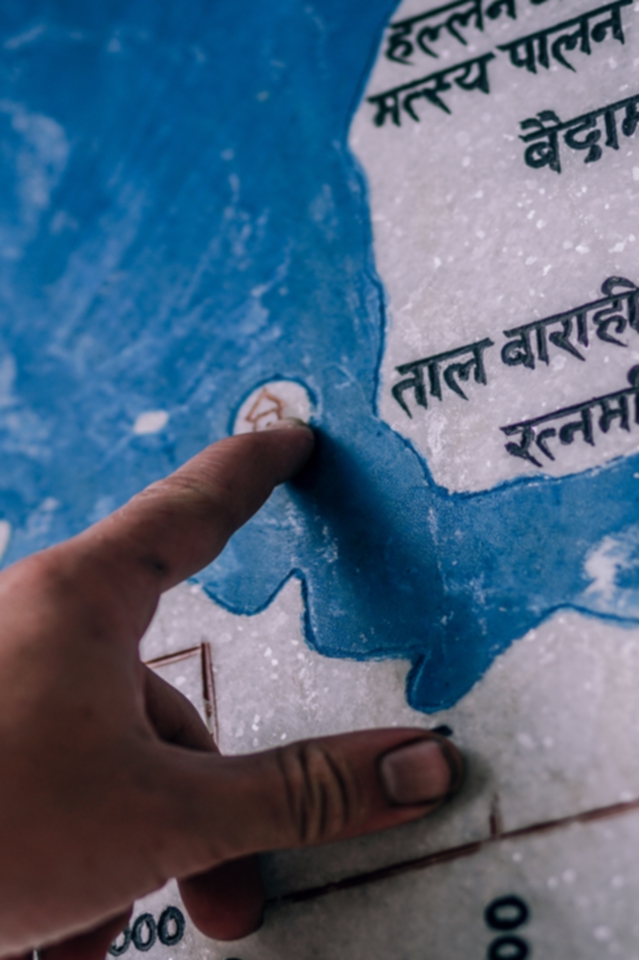 हल्लन
मत्स्य पालन
बैदाम
ताल वाराही
रत्नम
000
00